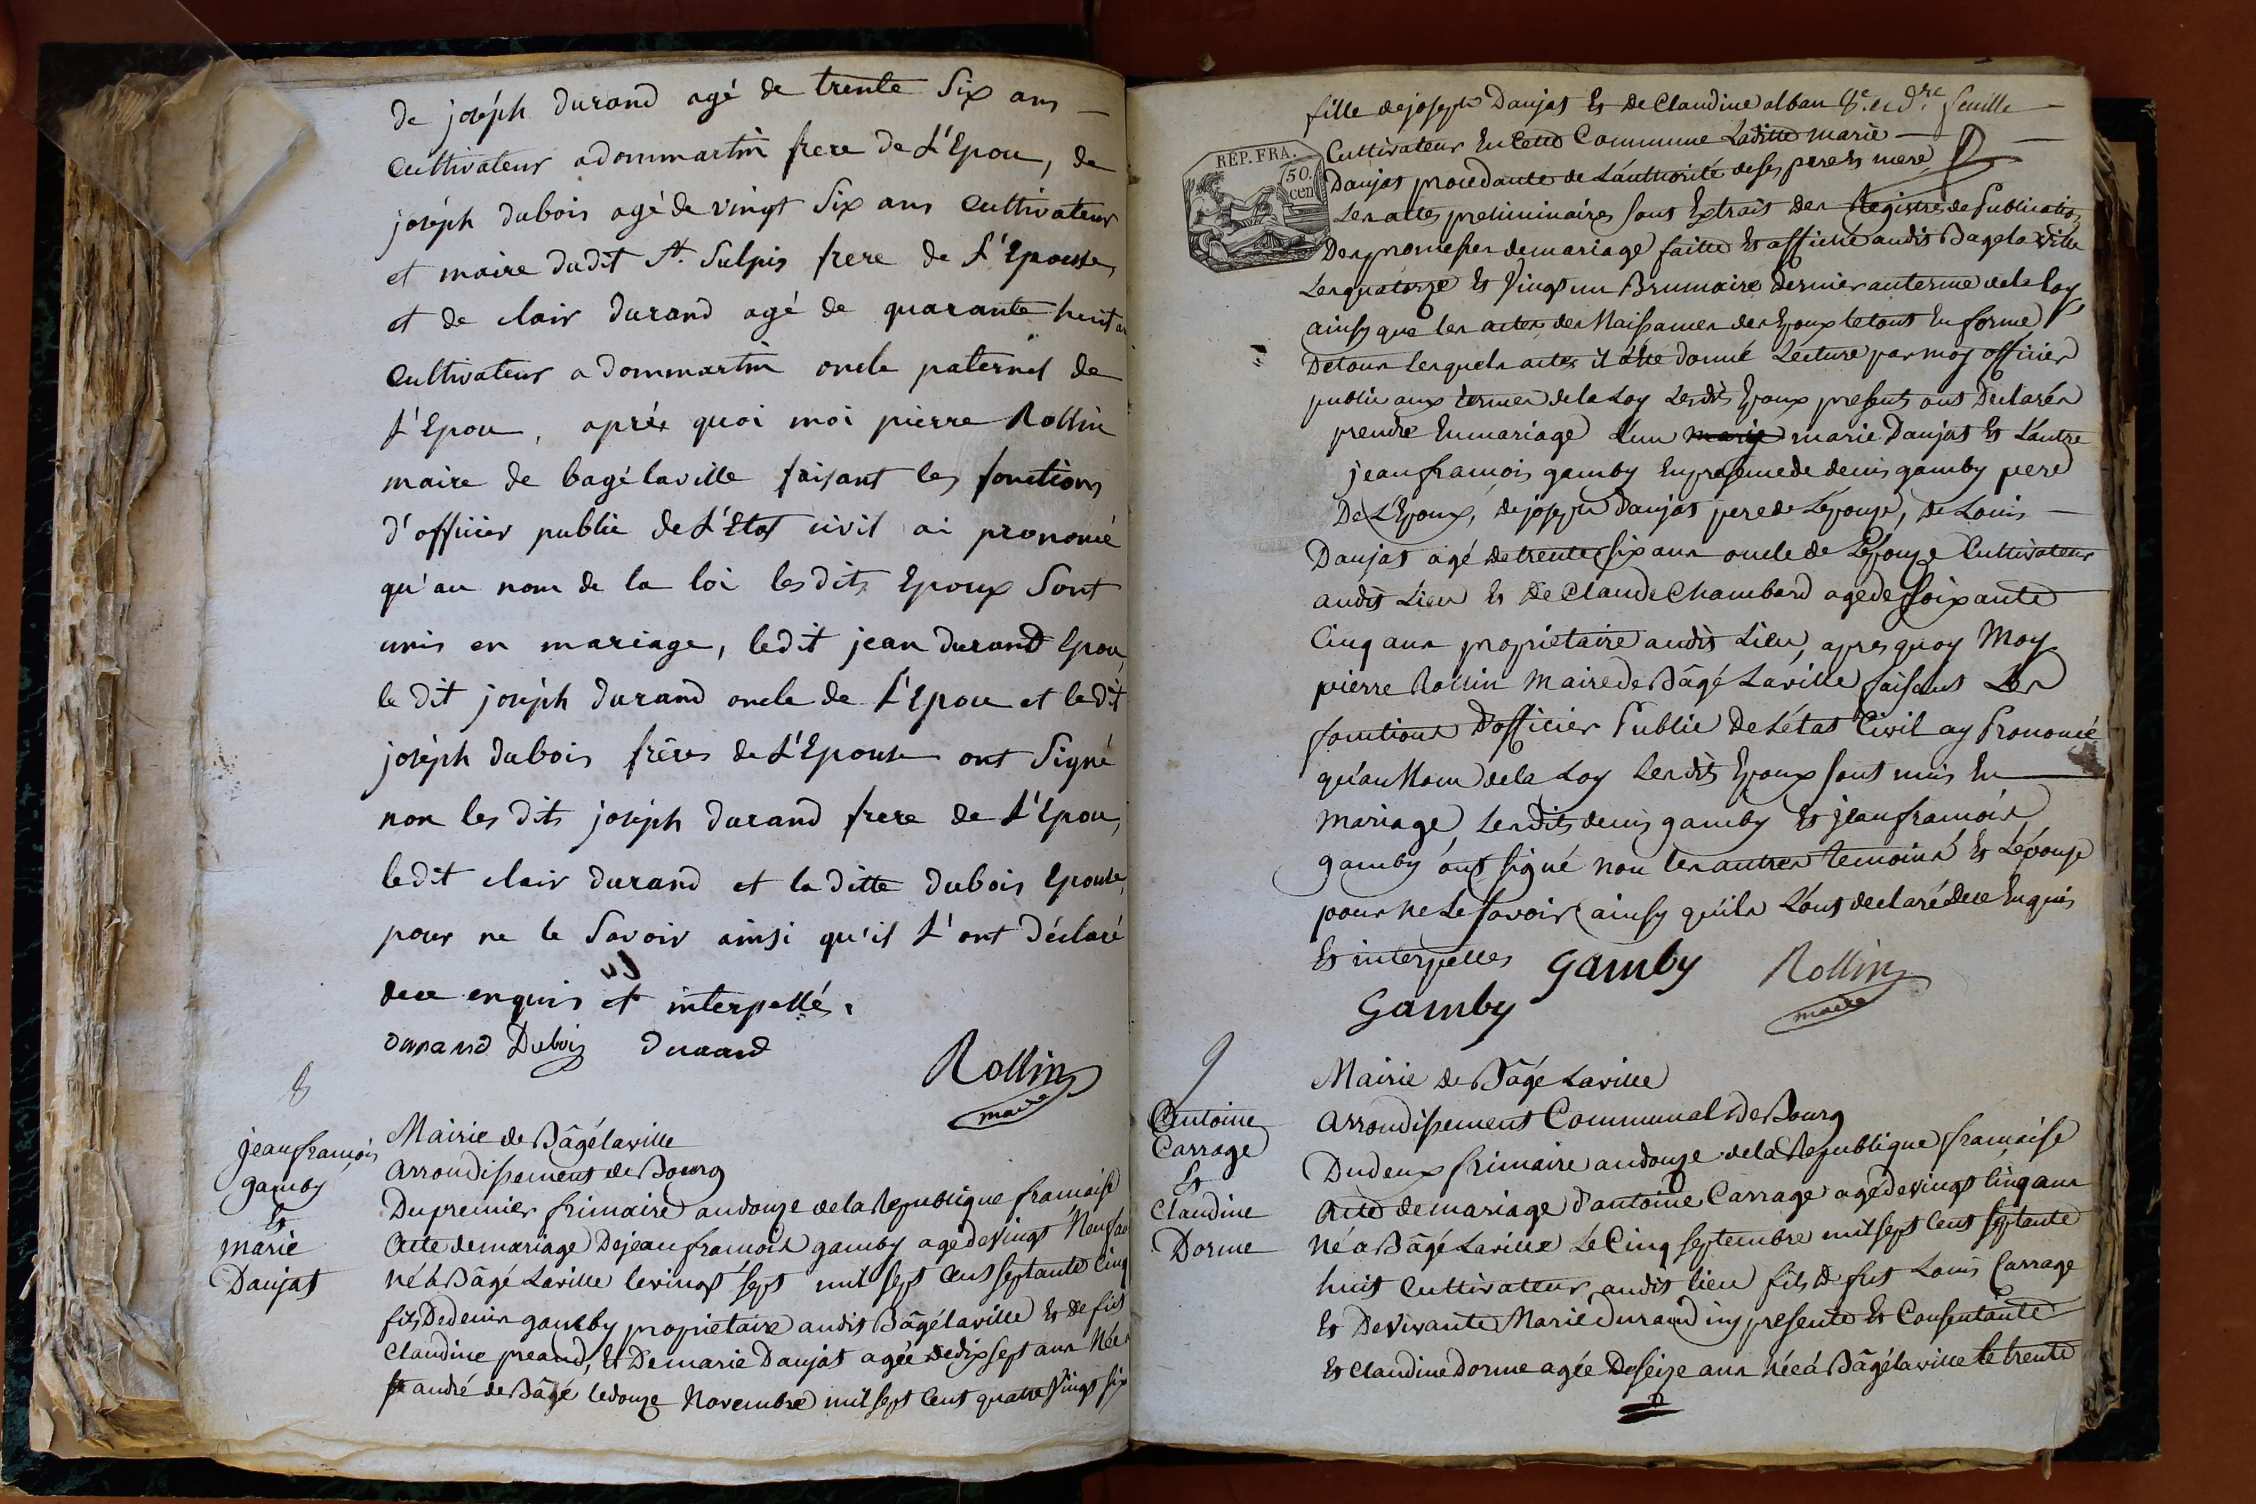 de joséph durand agé de trente Six ans —
cultivateur a dommartin frere de L'Epou, de
joséph dubois agé de vingt Six ans cultivateur
et maire dudit St. Sulpis frere de L'Epouse,
et de clair durand agé de quarante huit an
cultivateur a dommartin oncle paternel de
L'Epou, aprés quoi moi pierre Rollin
maire de bagé laville faisant les fonctions
d'officier public de L'Etat civil ai prononcé
qu'au nom de la loi lesdits Epoux Sont
unis en mariage, ledit jean durand Epou,
le dit joséph durand oncle de L'Epou et ledit
joséph dubois frères de L'Epouse ont Signé
non les dits joséph durand frere de L'Epou,
ledit clair durand et la ditte dubois Epouse,
pour ne le Savoir ainsi qu'il L'ont déclaré
dece enquis et interpellé.
durand Dubois durand
Rollin
maire
8
jean françois
gamby
Et
marie
Daujat
Mairie de Bâgé laville
arrondissement de Bourg
Du premier frimaire an douze de la Republique francaise
Acte de mariage De jean françois gamby agé de vingt Neuf an
né à Bâgé Laville le vingt sept mil sept cent septante cinq
fils De denis gamby proprietaire audit Bâgé laville Et de fut
Claudine preaud, Et De marie Daujat agée de dix sept ans Née a
st andré de Bâgé le douze Novembre mil sept cent quatre Vingt six
fille de joseph Daujat Et De Claudine alban 8e. et dre feuille
REP. FRA.
50.
cen
Cultivateur En Cette Commune Laditte marie —
Daujat procedante de L'authorité de ses pere Et mere
Les actes preliminaires sont Extrait des Registres de Publicatio,
Des promesses de mariage faitte Et affiché audit Bage la ville
Les quatorze Et Vingt un Brumaire dernier au terme de la Loy,
ainsy que les actes des Naissances des Epoux le tout En forme,
De tous lesquels actes il a été donné Lecture par moy officier
public aux termes de la Loy Lesdits Epoux presents ont Declarés
prendre En mariage L'un marie marie Daujat Et L'autre
jean françois gamby En presence de denis gamby pere
De L'Epoux, de joseph Daujat pere de L'épouse, de Louis —
Daujat agé de trente six ans oncle de L'épouse Cultivateur
audit Lieu Et De Claude Chambard agé de soixante
Cinq ans proprietaire audit Lieu, apres quoy Moy
pierre Rollin Maire de Bâgé Laville faisant Les
fonctions D'officier Public De L'état Civil ay Prononcé
qu'au Nom de la Loy Lesdits Epoux sont unis En
mariage, Lesdits denis gamby Et jean françois
gamby ont signé non les autres temoins Et L'épouse
pour Ne Le savoir ainsy qu'ils L'ont declaré de ce Enquis
Et interpelles
Gamby
Rollin
maire
Gamby
9
Antoine
Carrage
Et
Claudine
Dorme
Mairie de Bâgé Laville
Arrondissement Communal De Bourg
Du deux frimaire an douze de la Republique française
Acte de mariage d'antoine Carrage agé de vingt Cinq ans
Né a Bâgé Laville Le Cinq septembre mil sept cent septante
huit Cultivateur audit lieu fils de fut Louis Carrage
Et De vivante Marie Durand icy presente Et Consentante
Et Claudine Dorme agée De seize ans Née à Bâgé laville le trente